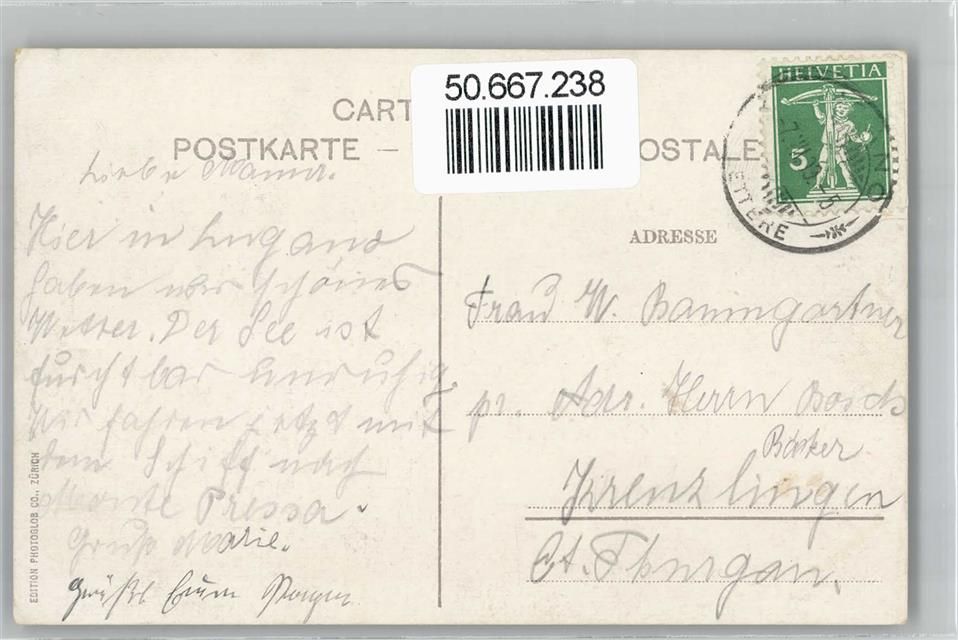 50.667.238
CART
POSTKARTE – OSTALE
HELVETIA
5
ETTERE
ADRESSE
Liebe Mama.
Hier in Lugano
haben wir schönes
Wetter. Der See ist
furchtbar unruhig.
Wir fahren jetzt mit
dem Schiff nach
Monte Pressa.
Gruß Marie.
Grüße
Frau W. Baumgartner
pr. Adr. Herrn Bosch
Bäcker
Kreuzlingen
Ct. Thurgau.
EDITION PHOTOGLOB CO., ZÜRICH